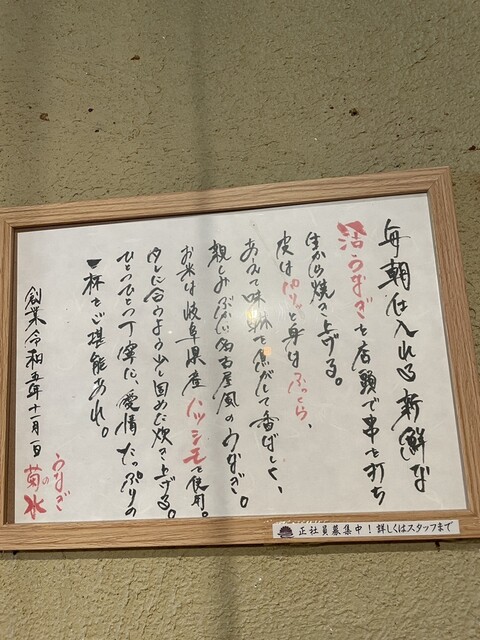 毎朝仕入れる新鮮な
活うなぎを店頭で串を打ち
生から焼き上げる。
皮はパリッと身はふっくら、
あえて味醂を焦がして香ばしく、
親しみぶかい名古屋風のうなぎ。
お米は岐阜県産ハツシモを使用。
タレに合うよう少し固めに炊き上げる。
ひとつひとつ丁寧に、愛情たっぷりの
一杯をご堪能あれ。
創業令和五年十一月一日
うなぎ
菊の水
正社員募集中！詳しくはスタッフまで